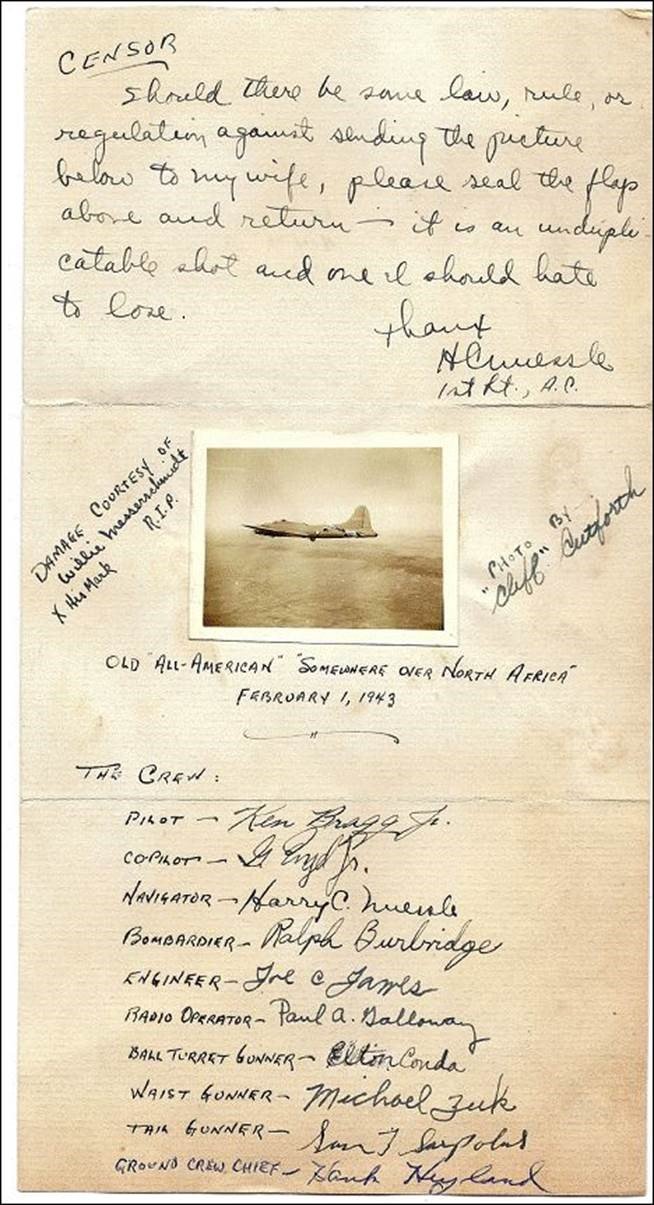 CENSOR
Should there be some law, rule, or
regulation against sending the picture
below to my wife, please seal the flaps
above and return — it is an undupli-
catable shot and one I should hate
to lose.
Thanx
HCNuessle
1st Lt., A.C.
DAMAGE COURTESY OF
Willie Messerschmidt
X His Mark R.I.P.
PHOTO BY
"Cliff" Cutforth
OLD "ALL-AMERICAN" "SOMEWHERE OVER NORTH AFRICA"
FEBRUARY 1, 1943
THE CREW:
PILOT — Ken Bragg Jr.
COPILOT — G Jr.
NAVIGATOR — Harry C. Nuessle
BOMBARDIER — Ralph Burbridge
ENGINEER — Joe C James
RADIO OPERATOR — Paul A. Galloway
BALL TURRET GUNNER — Elton Conda
WAIST GUNNER — Michael Zuk
TAIL GUNNER — Sam T Sarpolus
GROUND CREW CHIEF — Hank Hyland